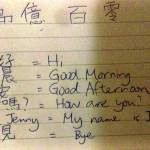 億 百 零
= Hi
= Good Morning
= Good Afternoon
嗎? = How are you?
Jenny = My name is J
見 = Bye